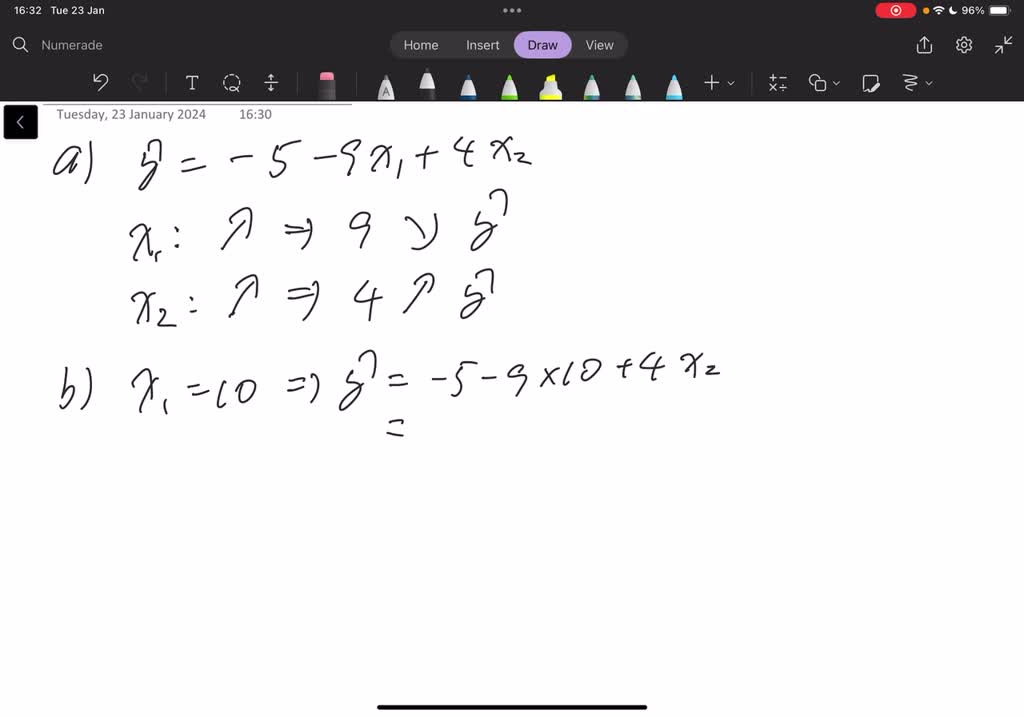 16:32 Tue 23 Jan 96%
Numerade Home Insert Draw View
T A
Tuesday, 23 January 2024 16:30
a) ŷ = -5 -9x₁ + 4x₂
x₁: ↗ ⇒ 9 ↘ ŷ
x₂: ↗ ⇒ 4 ↗ ŷ
b) x₁ = 10 ⇒ ŷ = -5 - 9 × 10 + 4 x₂
=